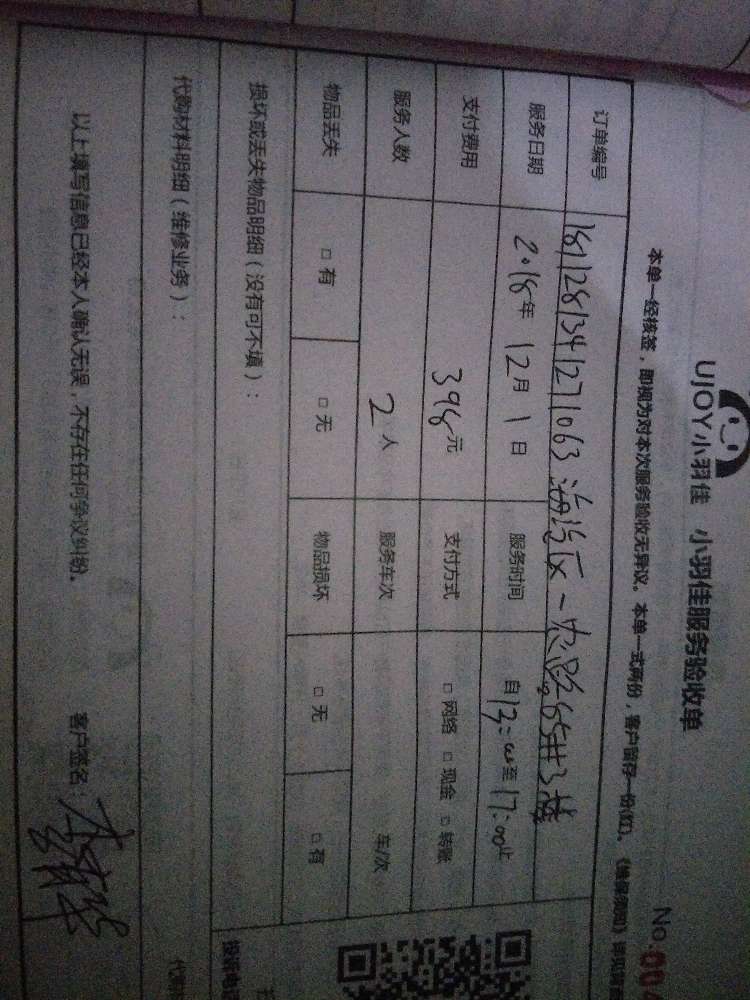 UJOY小羽佳 小羽佳服务验收单
No:00
本单一经核签，即视为对本次服务验收无异议。本单一式两份，客户留存一份(红)。
订单编号 1811281341271063
服务日期 2018年 12月 1日 服务时间 自13:00至17:00止
支付费用 398元 支付方式 □ 网络 □ 现金 □ 转账
服务人数 2人 服务车次 车/次
物品丢失 □ 有 □ 无 物品损坏 □ 无 □ 有
损坏或丢失物品明细（没有可不填）：
代购材料明细（维修业务）：
以上填写信息已经本人确认无误，不存在任何争议纠纷。 客户签名